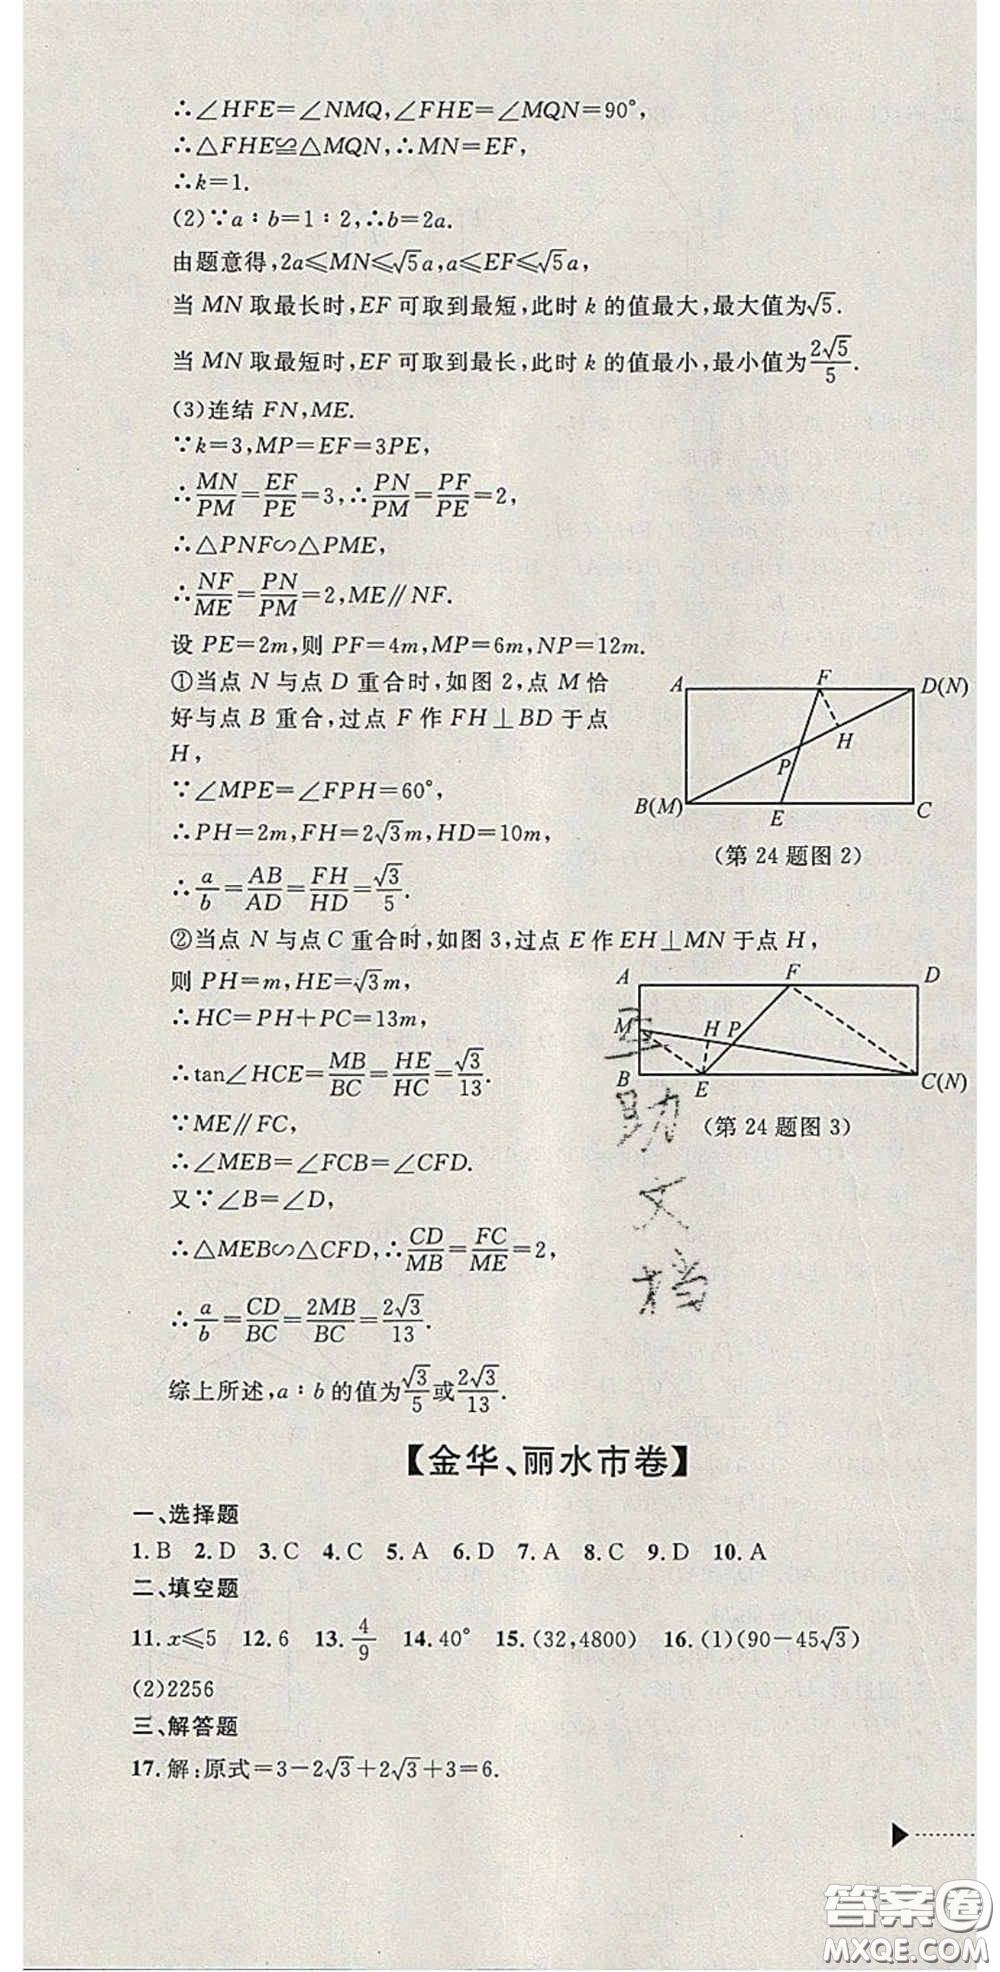 ∴∠HFE=∠NMQ,∠FHE=∠MQN=90°,
∴△FHE≌△MQN,∴MN=EF,
∴k=1.
(2)∵a∶b=1∶2,∴b=2a.
由题意得,2a≤MN≤√5a,a≤EF≤√5a,
当MN取最长时,EF可取到最短,此时k的值最大,最大值为√5.
当MN取最短时,EF可取到最长,此时k的值最小,最小值为2√5/5.
(3)连结FN,ME.
∵k=3,MP=EF=3PE,
∴MN/PM=EF/PE=3,∴PN/PM=PF/PE=2,
∴△PNF∽△PME,
∴NF/ME=PN/PM=2,ME∥NF.
设PE=2m,则PF=4m,MP=6m,NP=12m.
①当点N与点D重合时,如图2,点M恰
好与点B重合,过点F作FH⊥BD于点
H,
∵∠MPE=∠FPH=60°,
∴PH=2m,FH=2√3m,HD=10m,
∴a/b=AB/AD=FH/HD=√3/5.
A F D(N)
H
P
B(M) E C
(第24题图2)
②当点N与点C重合时,如图3,过点E作EH⊥MN于点H,
则PH=m,HE=√3m,
∴HC=PH+PC=13m,
∴tan∠HCE=MB/BC=HE/HC=√3/13.
∵ME∥FC,
∴∠MEB=∠FCB=∠CFD.
又∵∠B=∠D,
∴△MEB∽△CFD,∴CD/MB=FC/ME=2,
∴a/b=CD/BC=2MB/BC=2√3/13.
A F D
M H P
B E C(N)
(第24题图3)
互
助
文
档
综上所述,a∶b的值为√3/5或2√3/13.
【金华、丽水市卷】
一、选择题
1.B 2.D 3.C 4.C 5.A 6.D 7.A 8.C 9.D 10.A
二、填空题
11.x≤5 12.6 13.4/9 14.40° 15.(32,4800) 16.(1)(90-45√3)
(2)2256
三、解答题
17.解:原式=3-2√3+2√3+3=6.
答案圈
MXQE.COM